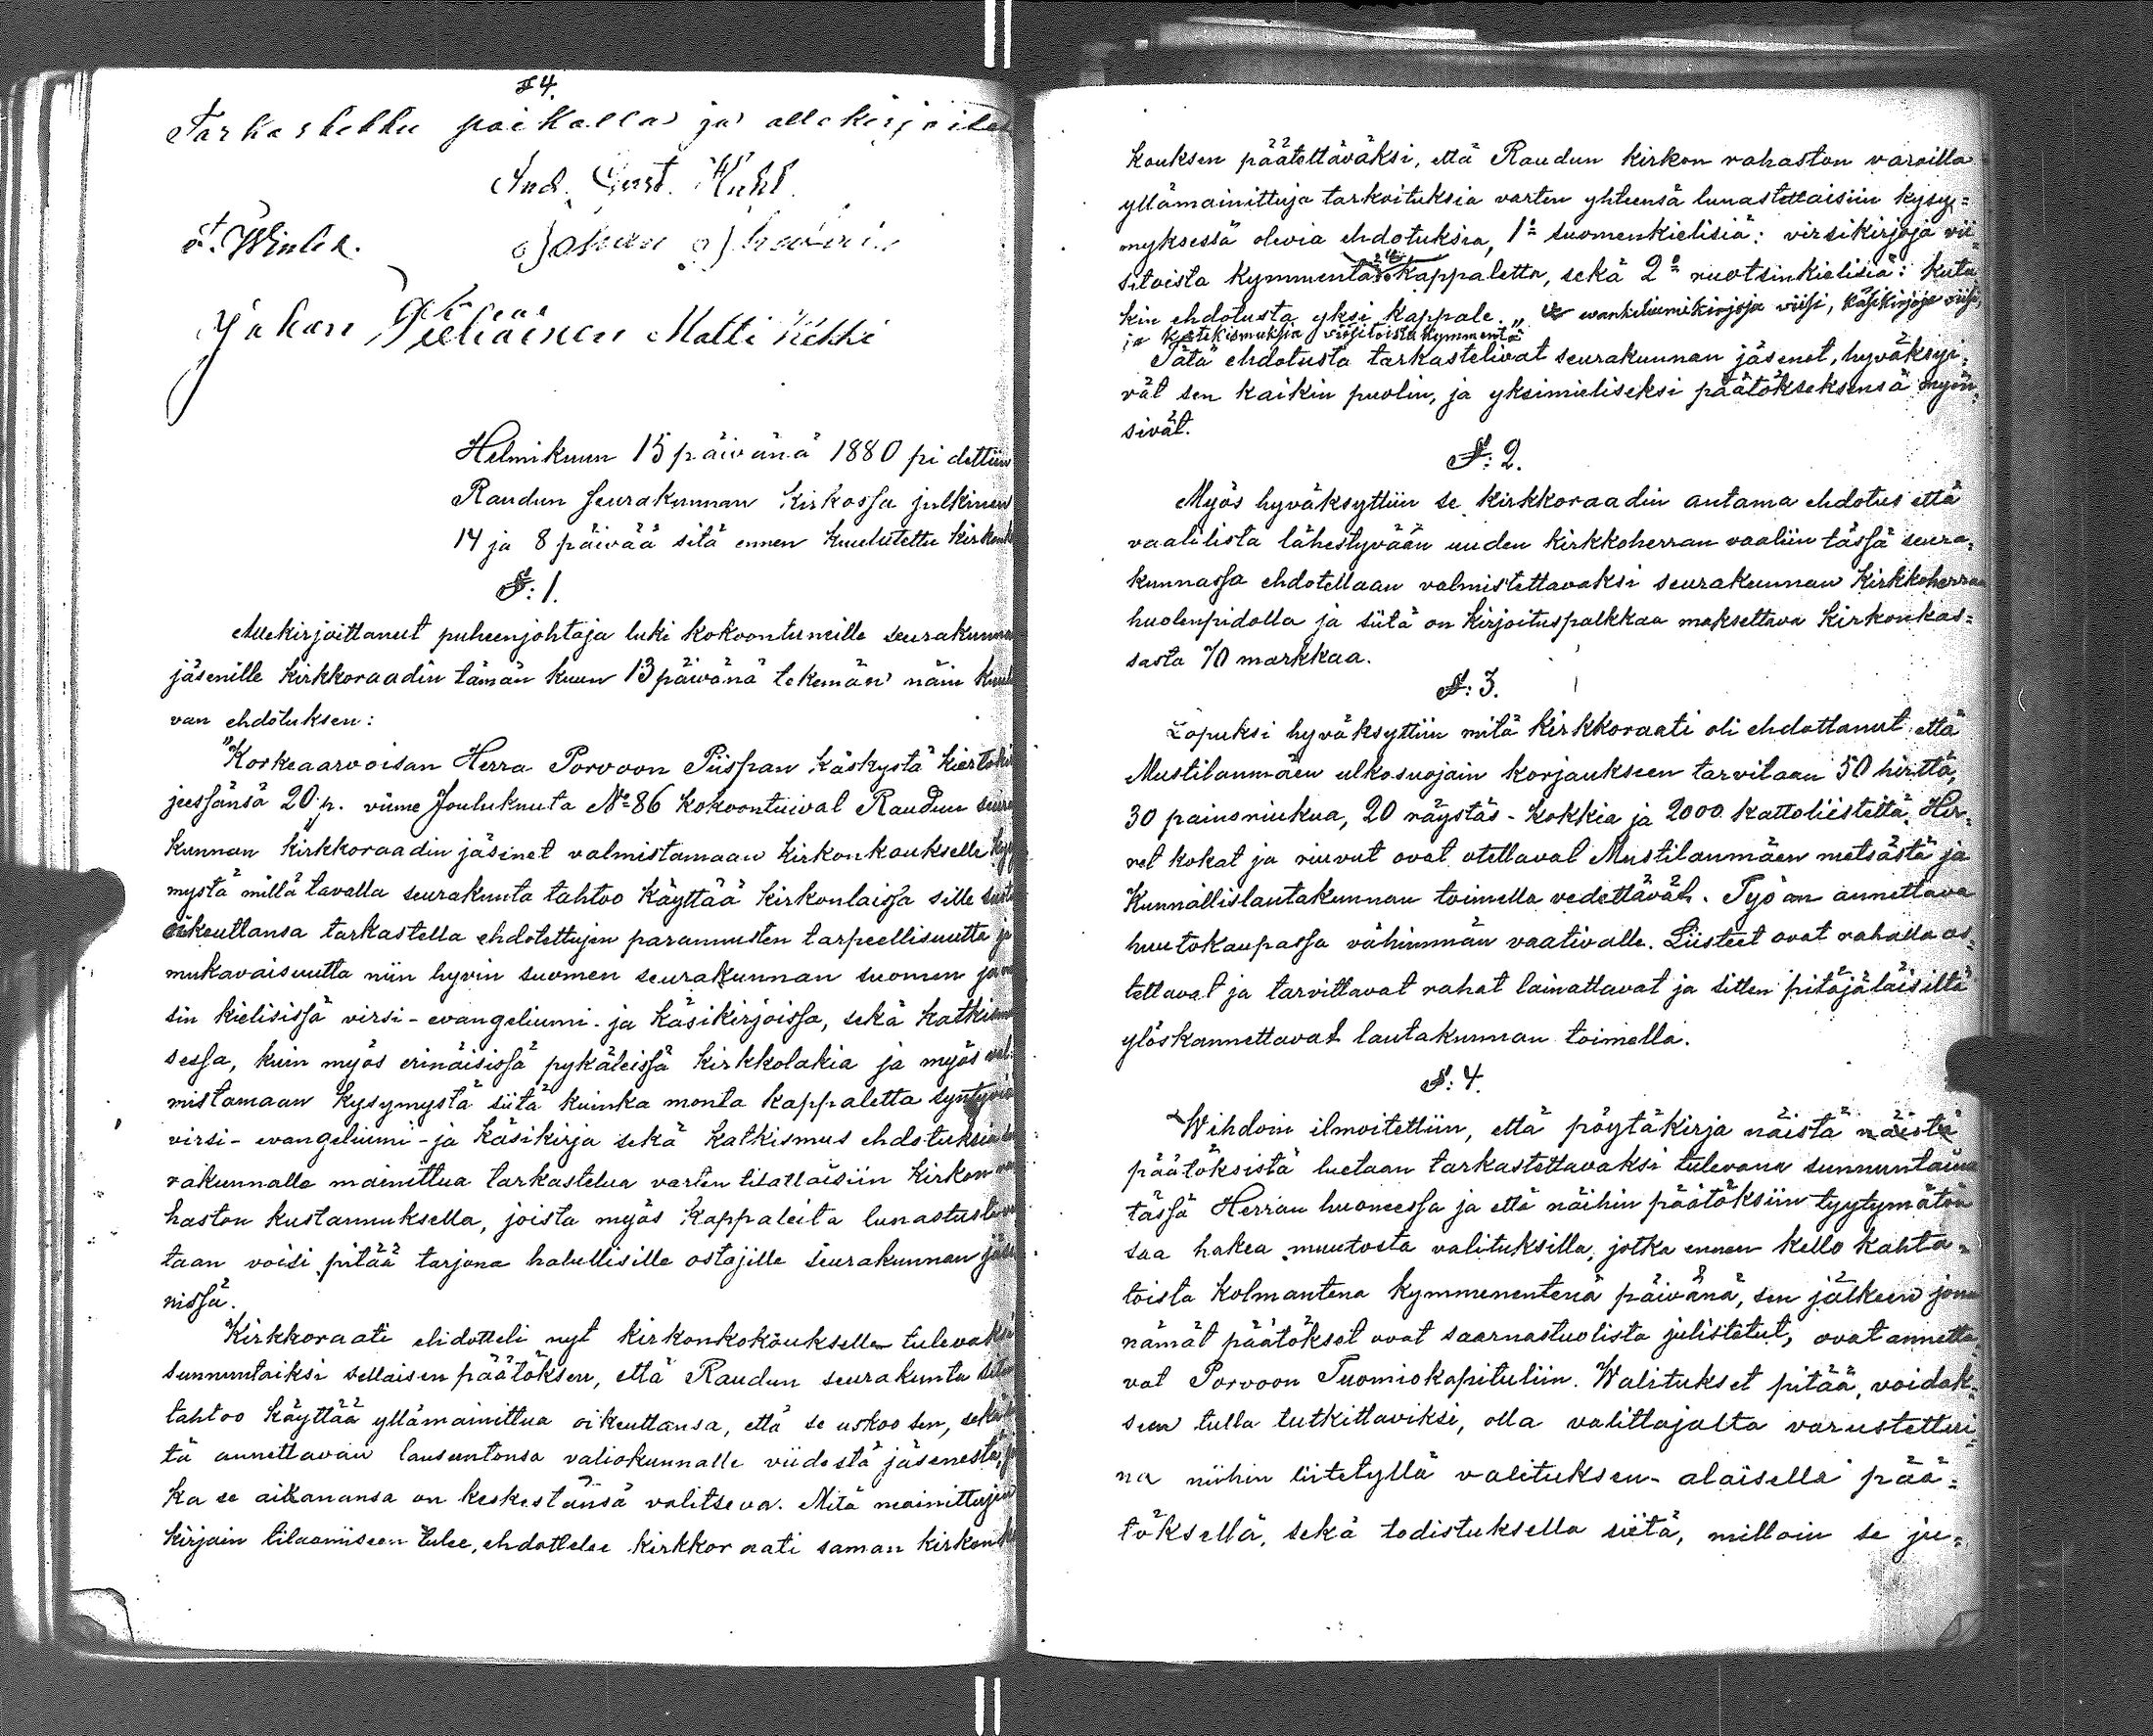 #4.
Tarkastettu paikalla ja allekirjoitet
Ind. Gust.
Johan
Johan Pieliäinen Matti Kekki
Helmikuun 15 päivänä 1880 pidettiin
Raudun seurakunnan Kirkossa julkinen
14 ja 8 päivää sitä ennen kuulutettu kirkonk
§: 1.
Allekirjoittanut puheenjohtaja luki kokoontuneille seurakunnan
jäsenille kirkkoraadin tämän kuun 13 päivänä tekemän näin kuulu
van ehdotuksen:
"Korkeaarvoisan Herra Porvoon Piispan käskystä kiertokir
jeessänsä 20 p. viime Joulukuuta No 86 kokoontuivat Raudun seura
kunnan kirkkoraadin jäsenet valmistamaan kirkonkoukselle kysy
mystä millä tavalla seurakunta tahtoo käyttää kirkonlaissa sille suotu
oikeuttansa tarkastella ehdotettujen parannusten tarpeellisuutta ja
mukavaisuutta niin hyvin suomen seurakunnan suomen ja ruot
sin kielisissä virsi- evangeliumi- ja käsikirjoissa, sekä katkismuk
sessa, kuin myös erinäisissä pykäleissä kirkkolakia ja myös val
mistamaan kysymystä siitä kuinka monta kappaletta syntyviä
virsi- evangeliumi- ja käsikirja sekä katkismus ehdotuksia seu
rakunnalle mainittua tarkastelua varten tilattaisiin kirkon ra
haston kustannuksella, joista myös kappaleita lunastusta vas
taan voisi pitää tarjona halullisille ostajille seurakunnan jäse
nissä.
Kirkkoraati ehdotteli nyt kirkonkokoukselle tulevaksi
sunnuntaiksi sellaisen päätöksen, että Raudun seurakunta siten
tahtoo käyttää yllämainittua oikeuttansa, että se uskoo sen, sekä
tä annettavan lausuntonsa valiokunnalle viidestä jäsenestä, jo
ka se aikanansa on keskestänsä valitseva. Mitä mainittujen
kirjain tilaamiseen tulee, ehdottelee kirkkoraati saman kirkonko
kouksen päätettäväksi, että Raudun kirkon rahaston varoilla
yllämainittuja tarkoituksia varten yhteensä lunastettaisiin kysy=
myksessä olevia ehdotuksia, 1o suomenkielisiä: virsikirjoja vii
sitoista kymmentä kappaletta, sekä 2o ruotsinkielisiä: kuta
kin ehdotusta yksi kappale. " evankeliumikirjoja viisi, käsikirjoja viisi,
ja katekismuksia viisitoista kymmentä
Tätä ehdotusta tarkastelivat seurakunnan jäsenet, hyväksyi=
vät sen kaikin puolin, ja yksimieliseksi päätökseksensä myön=
sivät.
§: 2.
Myös hyväksyttiin se kirkkoraadin antama ehdotus että
vaalilista lähestyvään uuden kirkkoherran vaaliin tässä seura=
kunnassa ehdotellaan valmistettavaksi seurakunnan kirkkoherran
huolenpidolla ja siitä on kirjoituspalkkaa maksettava kirkonkas=
sasta 70 markkaa.
§: 3.
Lopuksi hyväksyttiin mitä kirkkoraati oli ehdottanut että
Mustilanmäen ulkosuojain korjaukseen tarvitaan 50 hirttä,
30 painoriukua, 20 räystäs-kokkia ja 2000 kattoliistettä. Hir=
ret kokat ja riuvut ovat otettavat Mustilanmäen metsästä ja
Kunnallislautakunnan toimella vedettävät. Työ on annettava
huutokaupassa vähimmän vaativalle. Liisteet ovat rahalla os=
tettavat ja tarvittavat rahat lainattavat ja sitten pitäjäläisiltä
ylöskannettavat lautakunnan toimella.
§: 4.
Wihdoin ilmoitettiin, että pöytäkirja näistä näistä
päätöksistä luetaan tarkastettavaksi tulevana sunnuntaina
tässä Herran huoneessa ja että näihin päätöksiin tyytymätön
saa hakea muutosta valituksilla, jotka ennen kello kahta=
toista kolmantena kymmenentenä päivänä, sen jälkeen jona
nämät päätökset ovat saarnastuolista julistetut, ovat annetta=
vat Porvoon Tuomiokapituliin. Walitukset pitää, voidak=
seen tulla tutkittaviksi, olla valittajalta varustettui=
na niihin liitetyllä valituksen-alaisella pää=
töksellä, sekä todistuksella siitä, milloin se ju=